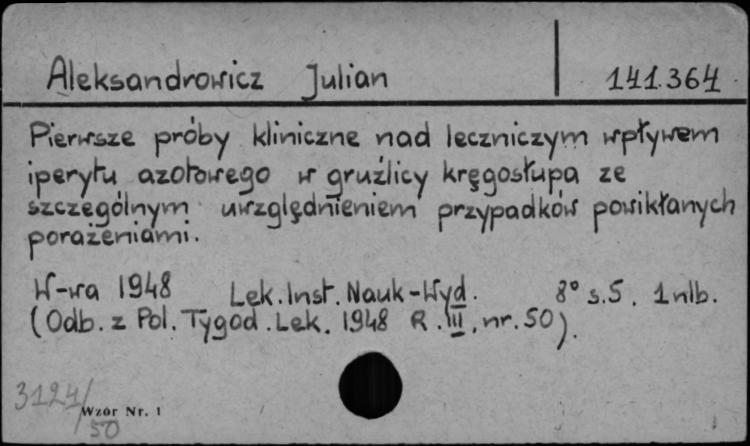 Aleksandrowicz Julian 141.364
Pierwsze próby kliniczne nad leczniczym wpływem
iperytu azotowego w gruźlicy kręgosłupa ze
szczególnym uwzględnieniem przypadków powikłanych
porażeniami.
W-wa 1948 Lek. Inst. Nauk-Wyd. 8° s.5. 1nlb.
(Odb. z Pol. Tygod. Lek. 1948 R. III, nr. 50).
3124/50
Wzór Nr. 1